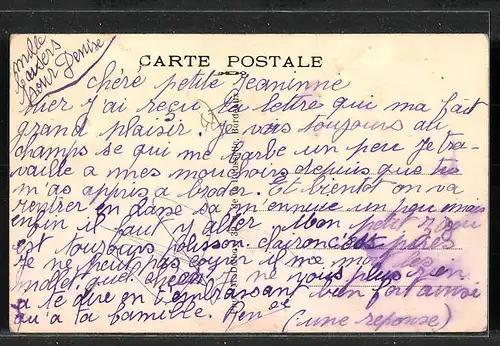 mille
baisers
pour Denise
CARTE POSTALE
chéré petite Jeaninne
hier j'ai reçu ta lettre qui ma fait
grand plaisir. Je vais toujours au
champs se qui me barbe un peu Je tra-
vaille a mes mouchoirs depuis que tu
m'as appris a broder. Et bientot on va
rentrer en classe sa m'ennuie un peu mais
enfin il faut y aller Mon petit
est toujours polisson
Je ne peux pas il me
que Je ne vois plus rien
a te dire en t'embrassant bien fort ainsi
qu'a ta famille. (une reponse)